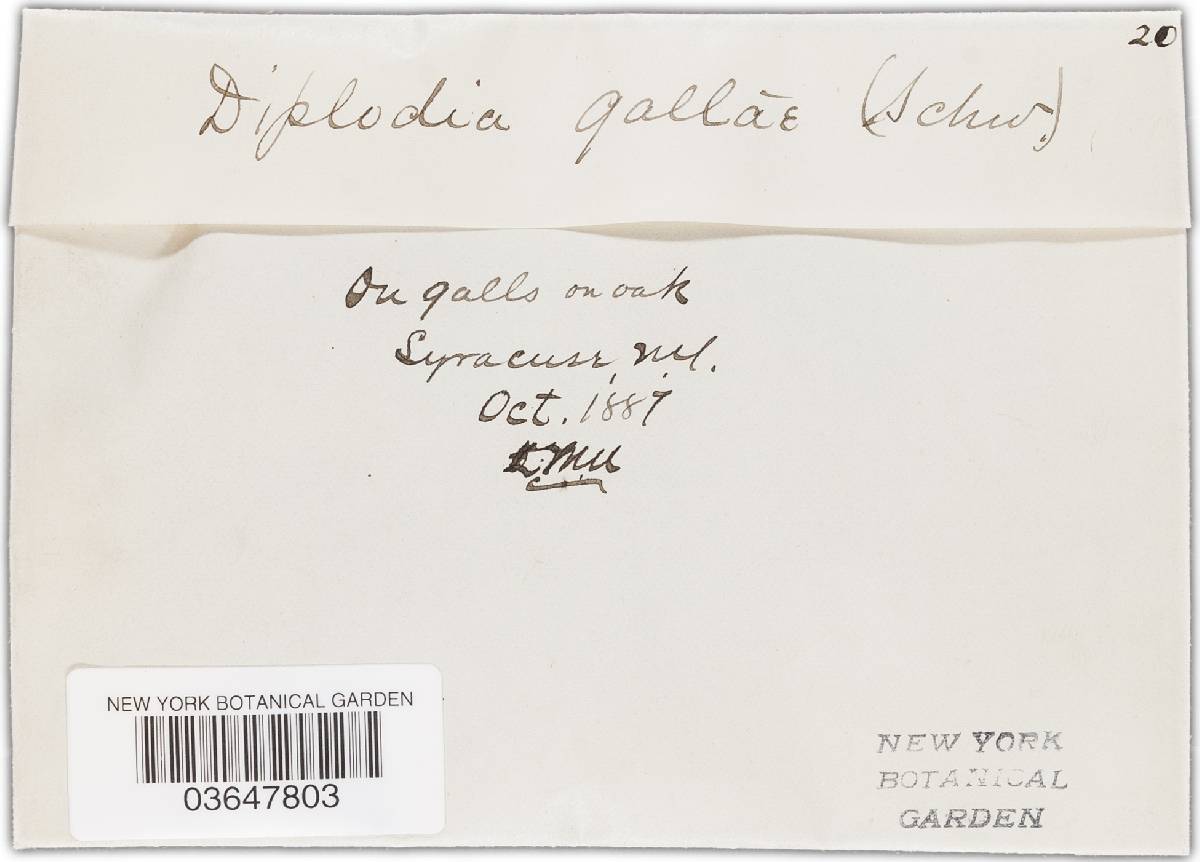 20
Diplodia gallae (Schw.)
On galls on oak
Syracuse, N.Y.
Oct. 1887
NEW YORK BOTANICAL GARDEN
03647803
NEW YORK
BOTANICAL
GARDEN